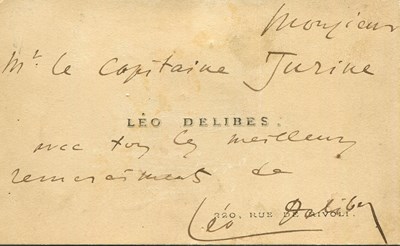 Monsieur
Mr. le Capitaine Jurine
LÉO DELIBES.
avec tous les meilleurs
remerciements de
Léo Delibes
220, RUE DE RIVOLI.